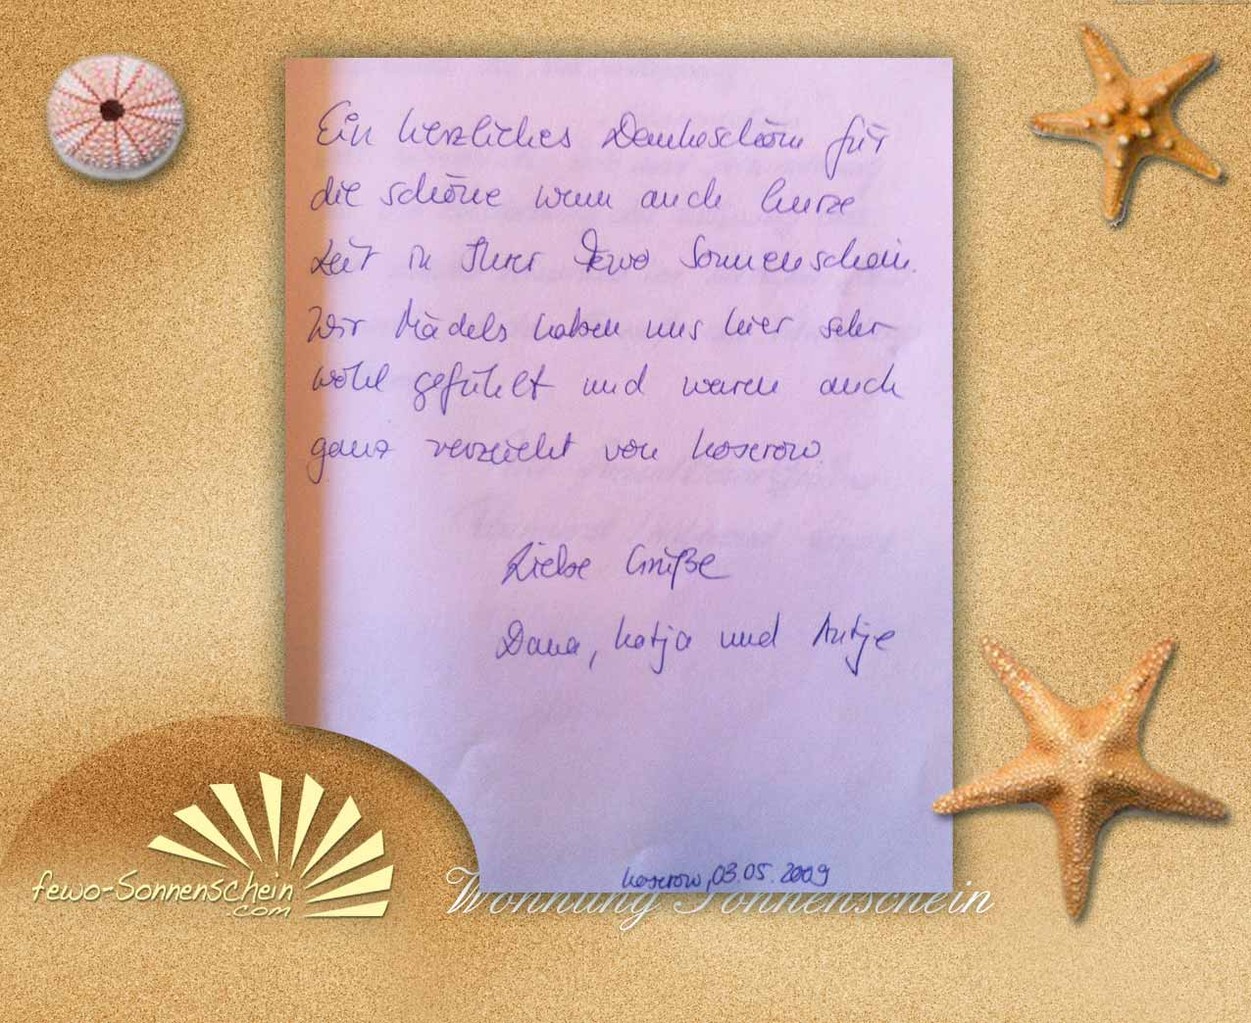 Ein herzliches Dankeschön für
die schöne wenn auch kurze
Zeit in Ihrer Fewo Sonnenschein.
Wir Mädels haben uns hier sehr
wohl gefühlt und waren auch
ganz verzückt von Koserow
Liebe Grüße
Dana, Katja und Antje
Koserow, 03.05.2009
fewo-Sonnenschein
.com
Wohnung Sonnenschein